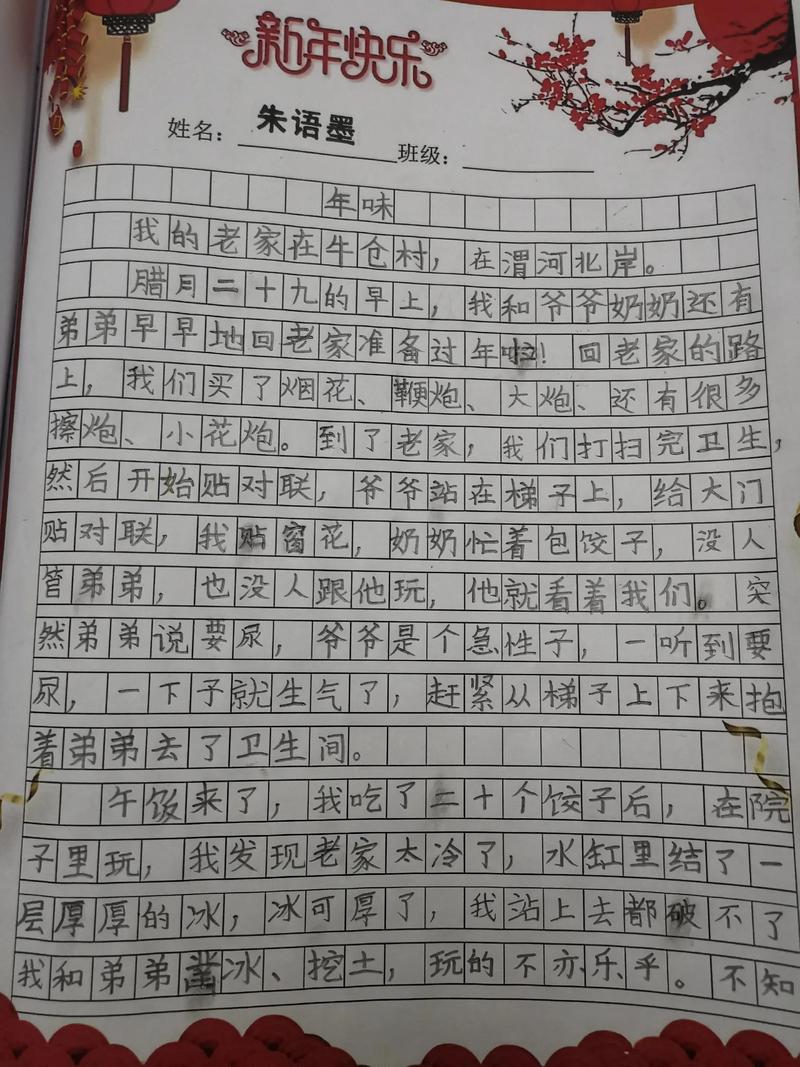 新年快乐
姓名：朱语墨 班级：
年味
我的老家在牛仓村，在渭河北岸。
腊月二十九的早上，我和爷爷奶奶还有
弟弟早早地回老家准备过年啦！回老家的路
上，我们买了烟花、鞭炮、大炮、还有很多
擦炮、小花炮。到了老家，我们打扫完卫生，
然后开始贴对联，爷爷站在梯子上，给大门
贴对联，我贴窗花，奶奶忙着包饺子，没人
管弟弟，也没人跟他玩，他就看着我们。突
然弟弟说要尿，爷爷是个急性子，一听到要
尿，一下子就生气了，赶紧从梯子上下来抱
着弟弟去了卫生间。
午饭来了，我吃了二十个饺子后，在院
子里玩，我发现老家太冷了，水缸里结了一
层厚厚的冰，冰可厚了，我站上去都破不了
我和弟弟凿冰、挖土，玩的不亦乐乎。不知